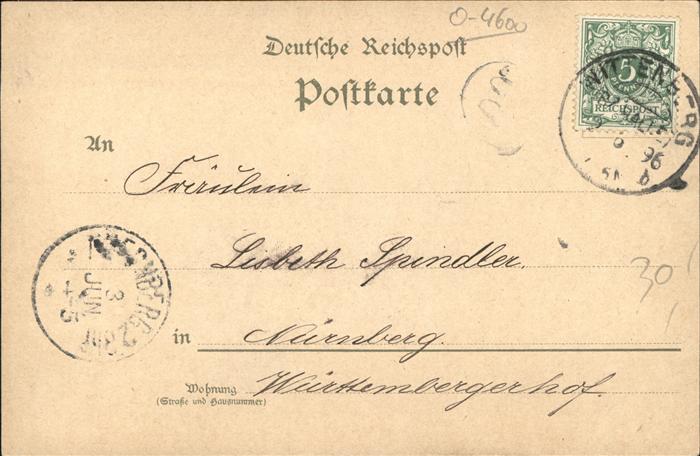 O-4600
Deutsche Reichspost
Postkarte
5
REICHSPOST
WITTENBERG
96
An
Fräulein
Lisbeth Spindler.
30
in Nürnberg.
3
JUN
4-5
Wohnung
(Straße und Hausnummer)
Württembergerhof.